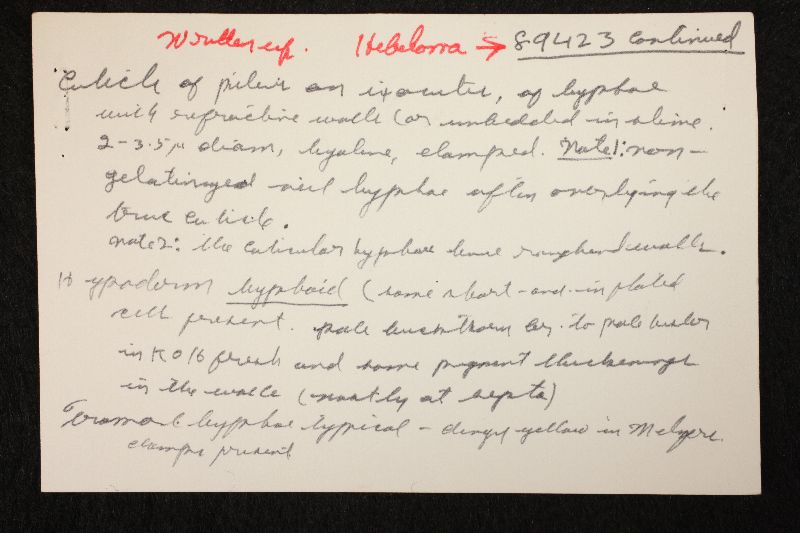 Written up. Hebeloma → 89423 continued
Cuticle of pileus an ixocutis, of hyphae
with refractive walls (or imbedded in slime.
2-3.5µ diam, hyaline, clamped. Note1: non-
gelatinized veil hyphae often overlying the
true cuticle.
Note2: the cuticular hyphae have roughened walls.
Hypoderm hyphoid (some short-and-inflated
cells present. pale buckthorn br. to pale
in KOH fresh and some pigment thickenings
in the walls (mostly at septa)
Tramal hyphae typical - dingy yellow in Melzers.
clamps present